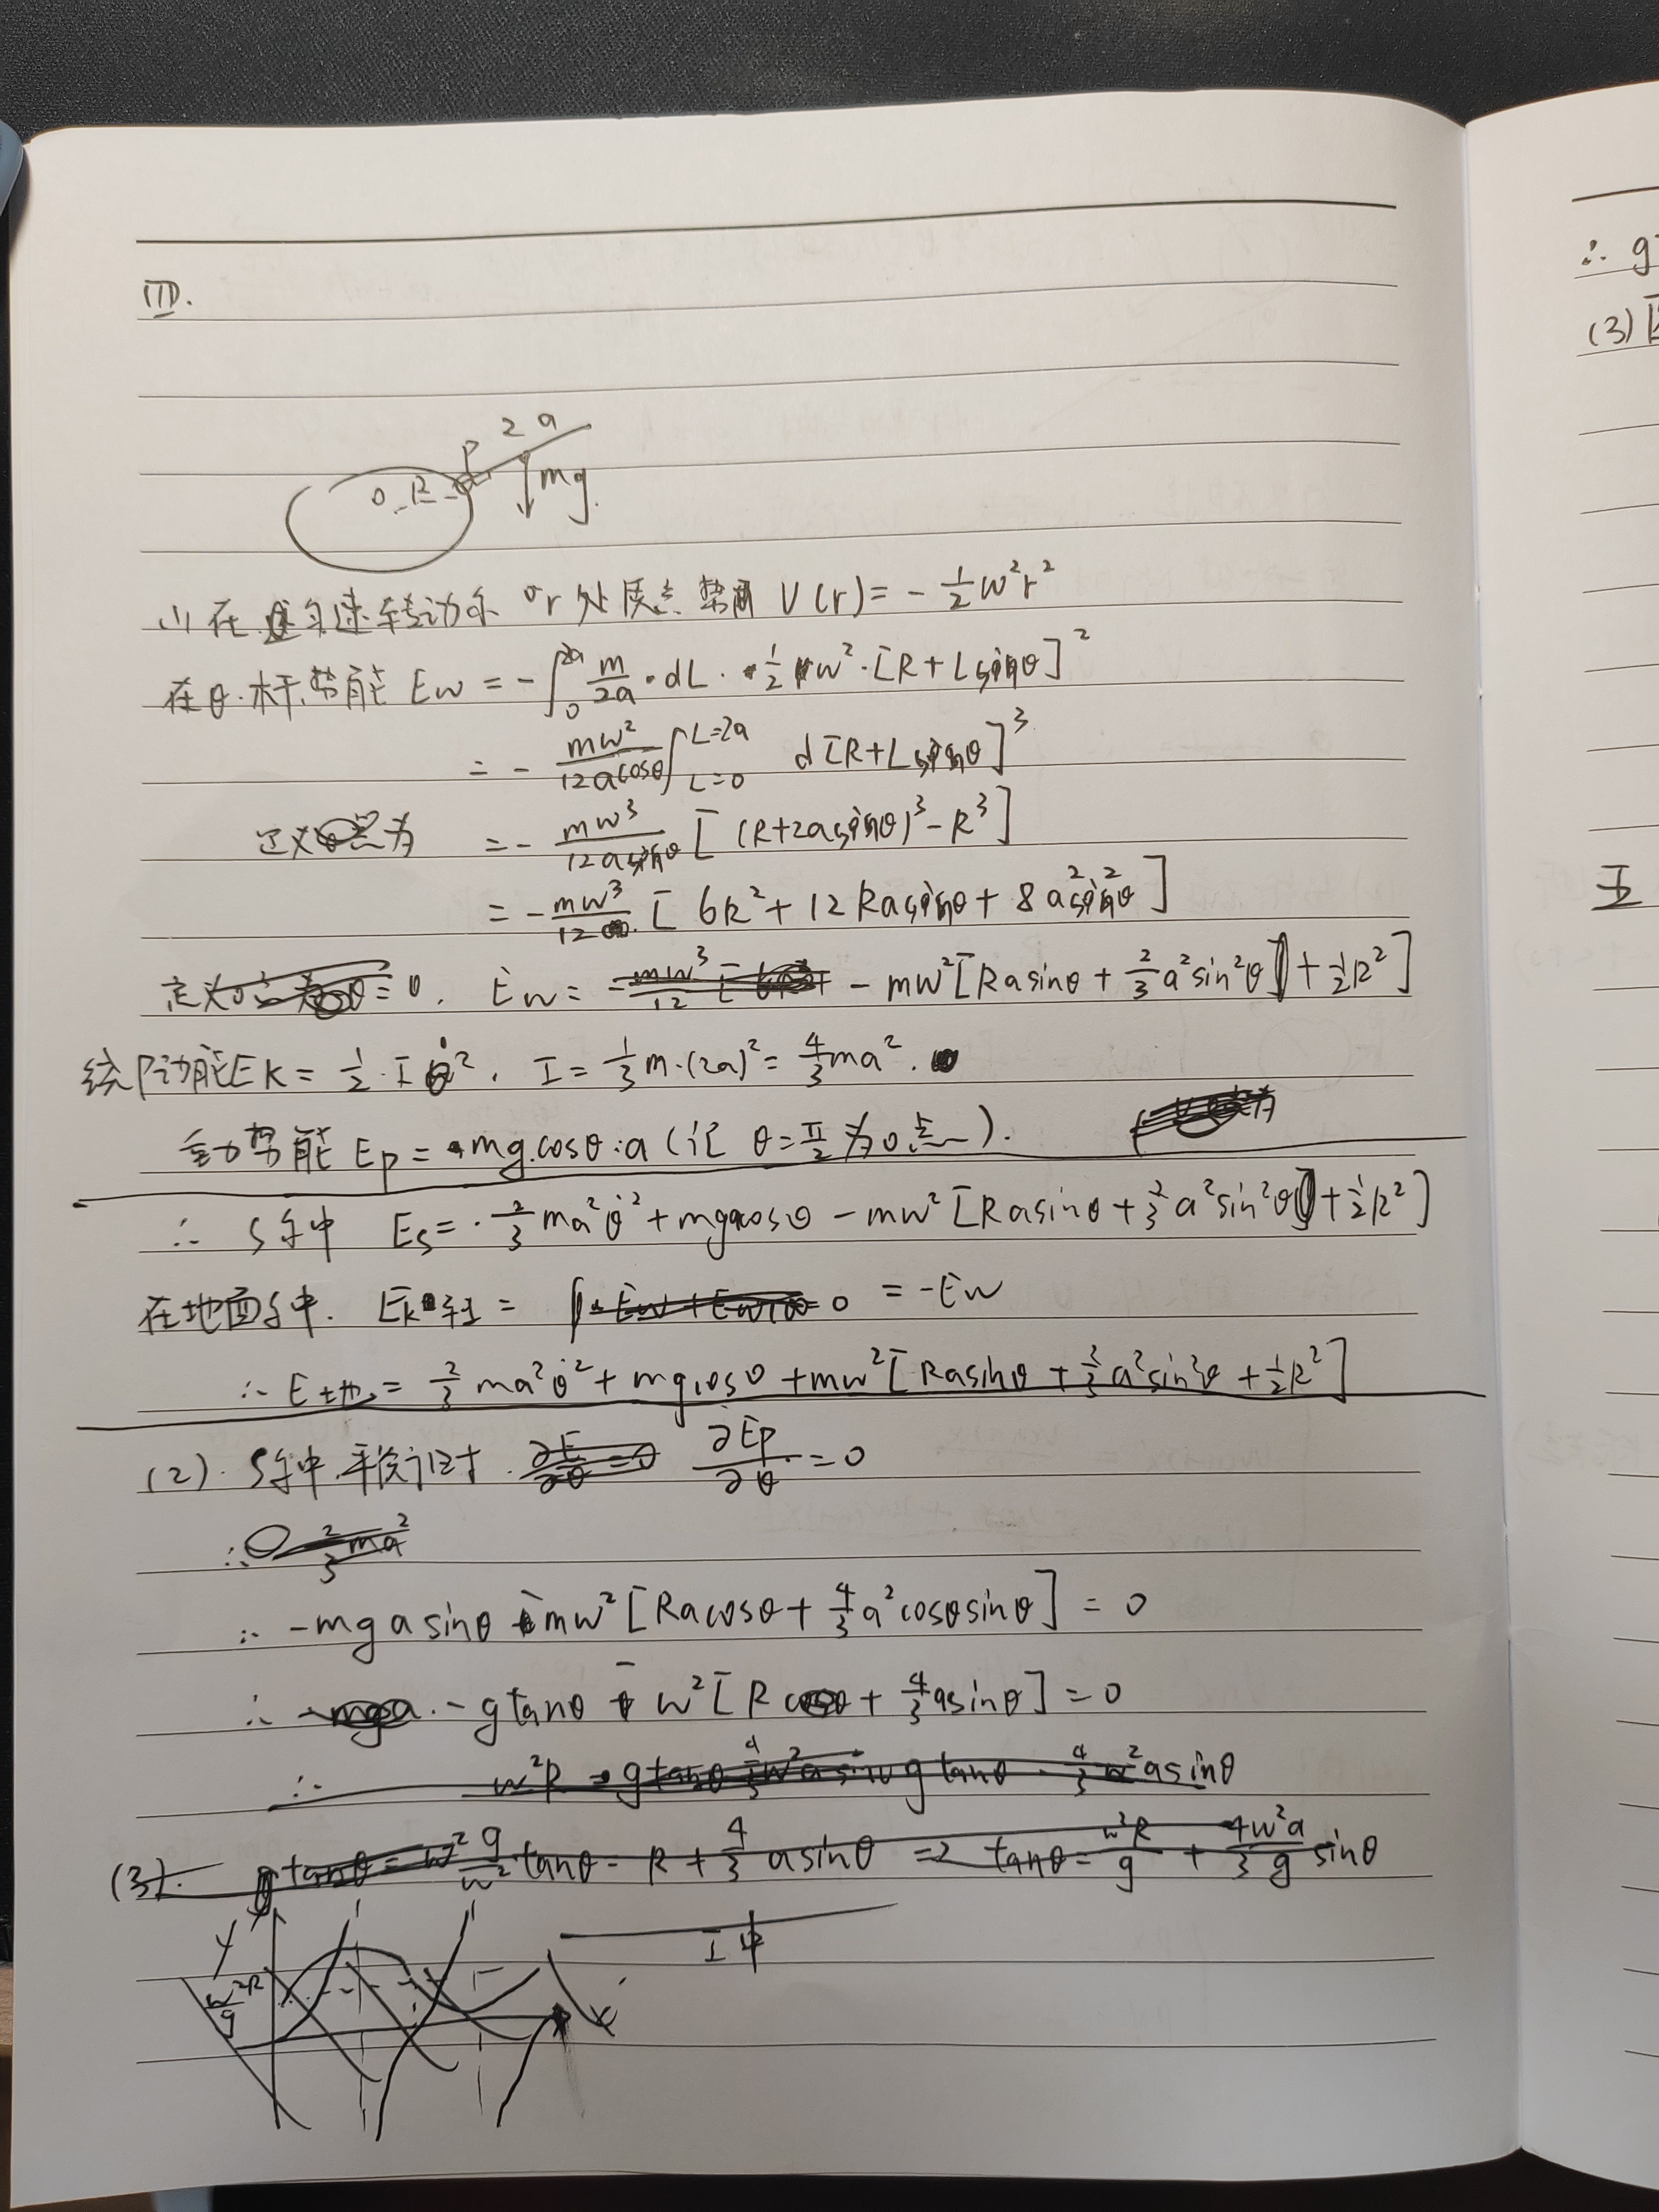 Ⅲ.
P 2a
O R
mg
(1)在匀速转动系 r处质点势 V(r) = -½w²r²
在θ.杆势能 Ew = -∫₀²ᵃ m/2a · dL · ½w²·[R+Lsinθ]²
= - mw²/12acosθ ∫_{L=0}^{L=2a} d[R+Lsinθ]³
定义 为 = - mw³/12asinθ [(R+2asinθ)³-R³]
= - mw³/12 [6R²+12Rasinθ+8a²sin²θ]
Ew = -mw²[Rasinθ+⅔a²sin²θ+½R²]
绕P动能Ek = ½·Iθ̇², I = ⅓m·(2a)² = 4/3ma².
重力势能 Ep = mg.cosθ·a (记 θ=π/2为0点).
∴ S系中 Es = ⅔ma²θ̇²+mgacosθ-mw²[Rasinθ+⅔a²sin²θ+½R²]
在地面系中. Ek = -Ew
∴ E地 = ⅔ma²θ̇²+mgcosθ+mw²[Rasinθ+⅔a²sin²θ+½R²]
(2). S系中.平衡时 ∂Ep/∂θ = 0
∴ -mgasinθ - mw²[Racosθ+4/3a²cosθsinθ] = 0
∴ -gtanθ - w²[R+4/3asinθ] = 0
∴ w²R = gtanθ - 4/3w²asinθ
(3). g/w² tanθ = R+4/3asinθ ⇒ tanθ = w²R/g + 4w²a/3g sinθ
Y
w²R/g
I中
X
∴ g
(3)
五